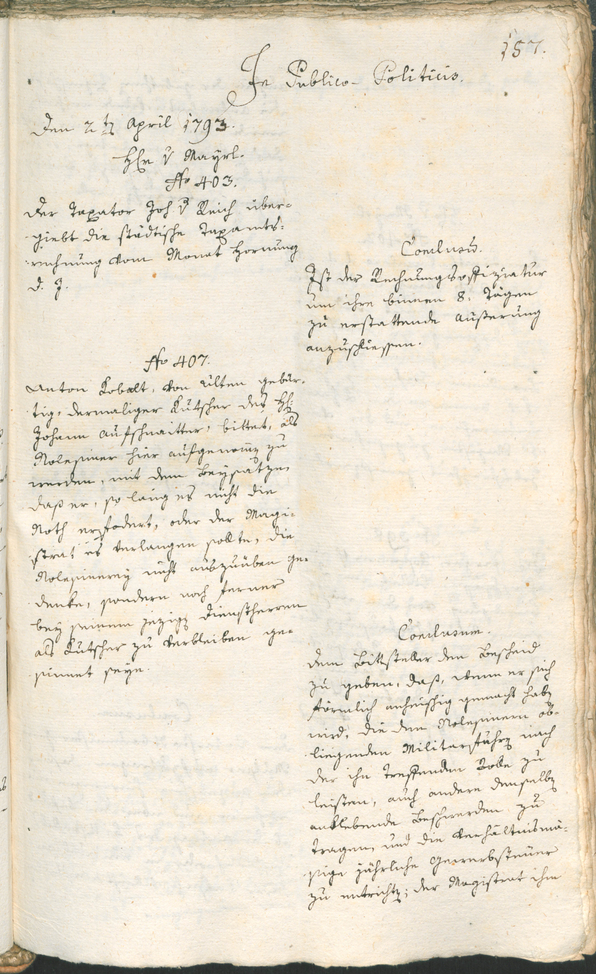 157.
In Publico-Politicis.
Den 2t April 1793.
Hr. v Mayrl.
No 403.
Der Taxator Joh. v Reich über-
giebt die städtische Taxamts-
rechnung vom Monat Hornung
d. J.
Conclusum.
Ist der Rechnungsoffiziatur
um ihre binnen 8. Tägen
zu erstattende Äußerung
anzuschliessen.
No 407.
Anton Kobalt, von Ulten gebür-
tig, dermaliger Kutscher des H:
Johann Aufschnaitter, bittet, als
Rolesiner hier aufgenomen zu
werden, mit dem Beysatze,
daß er, so lang es nicht die
Noth erfodert, oder der Magi-
strat es verlangen sollte, die
Rolesinerey nicht auszuüben ge-
denke, sondern noch ferner
bey seinem jezigen Dienstherrn
als Kutscher zu verbleiben ge-
sinnet seye.
Conclusum.
Dem Bittsteller den Bescheid
zu geben, daß, wenn er sich
förmlich ansässig gemacht haben
wird, die den Rolesinern ob-
liegenden Militarfuhren nach
der ihn treffenden Rode zu
leisten, auch andere denselben
anklebende Beschwerden zu
tragen, und die verhältnismä-
ßige jährliche Gewerbsteuer
zu entrichten; der Magistrat ihn